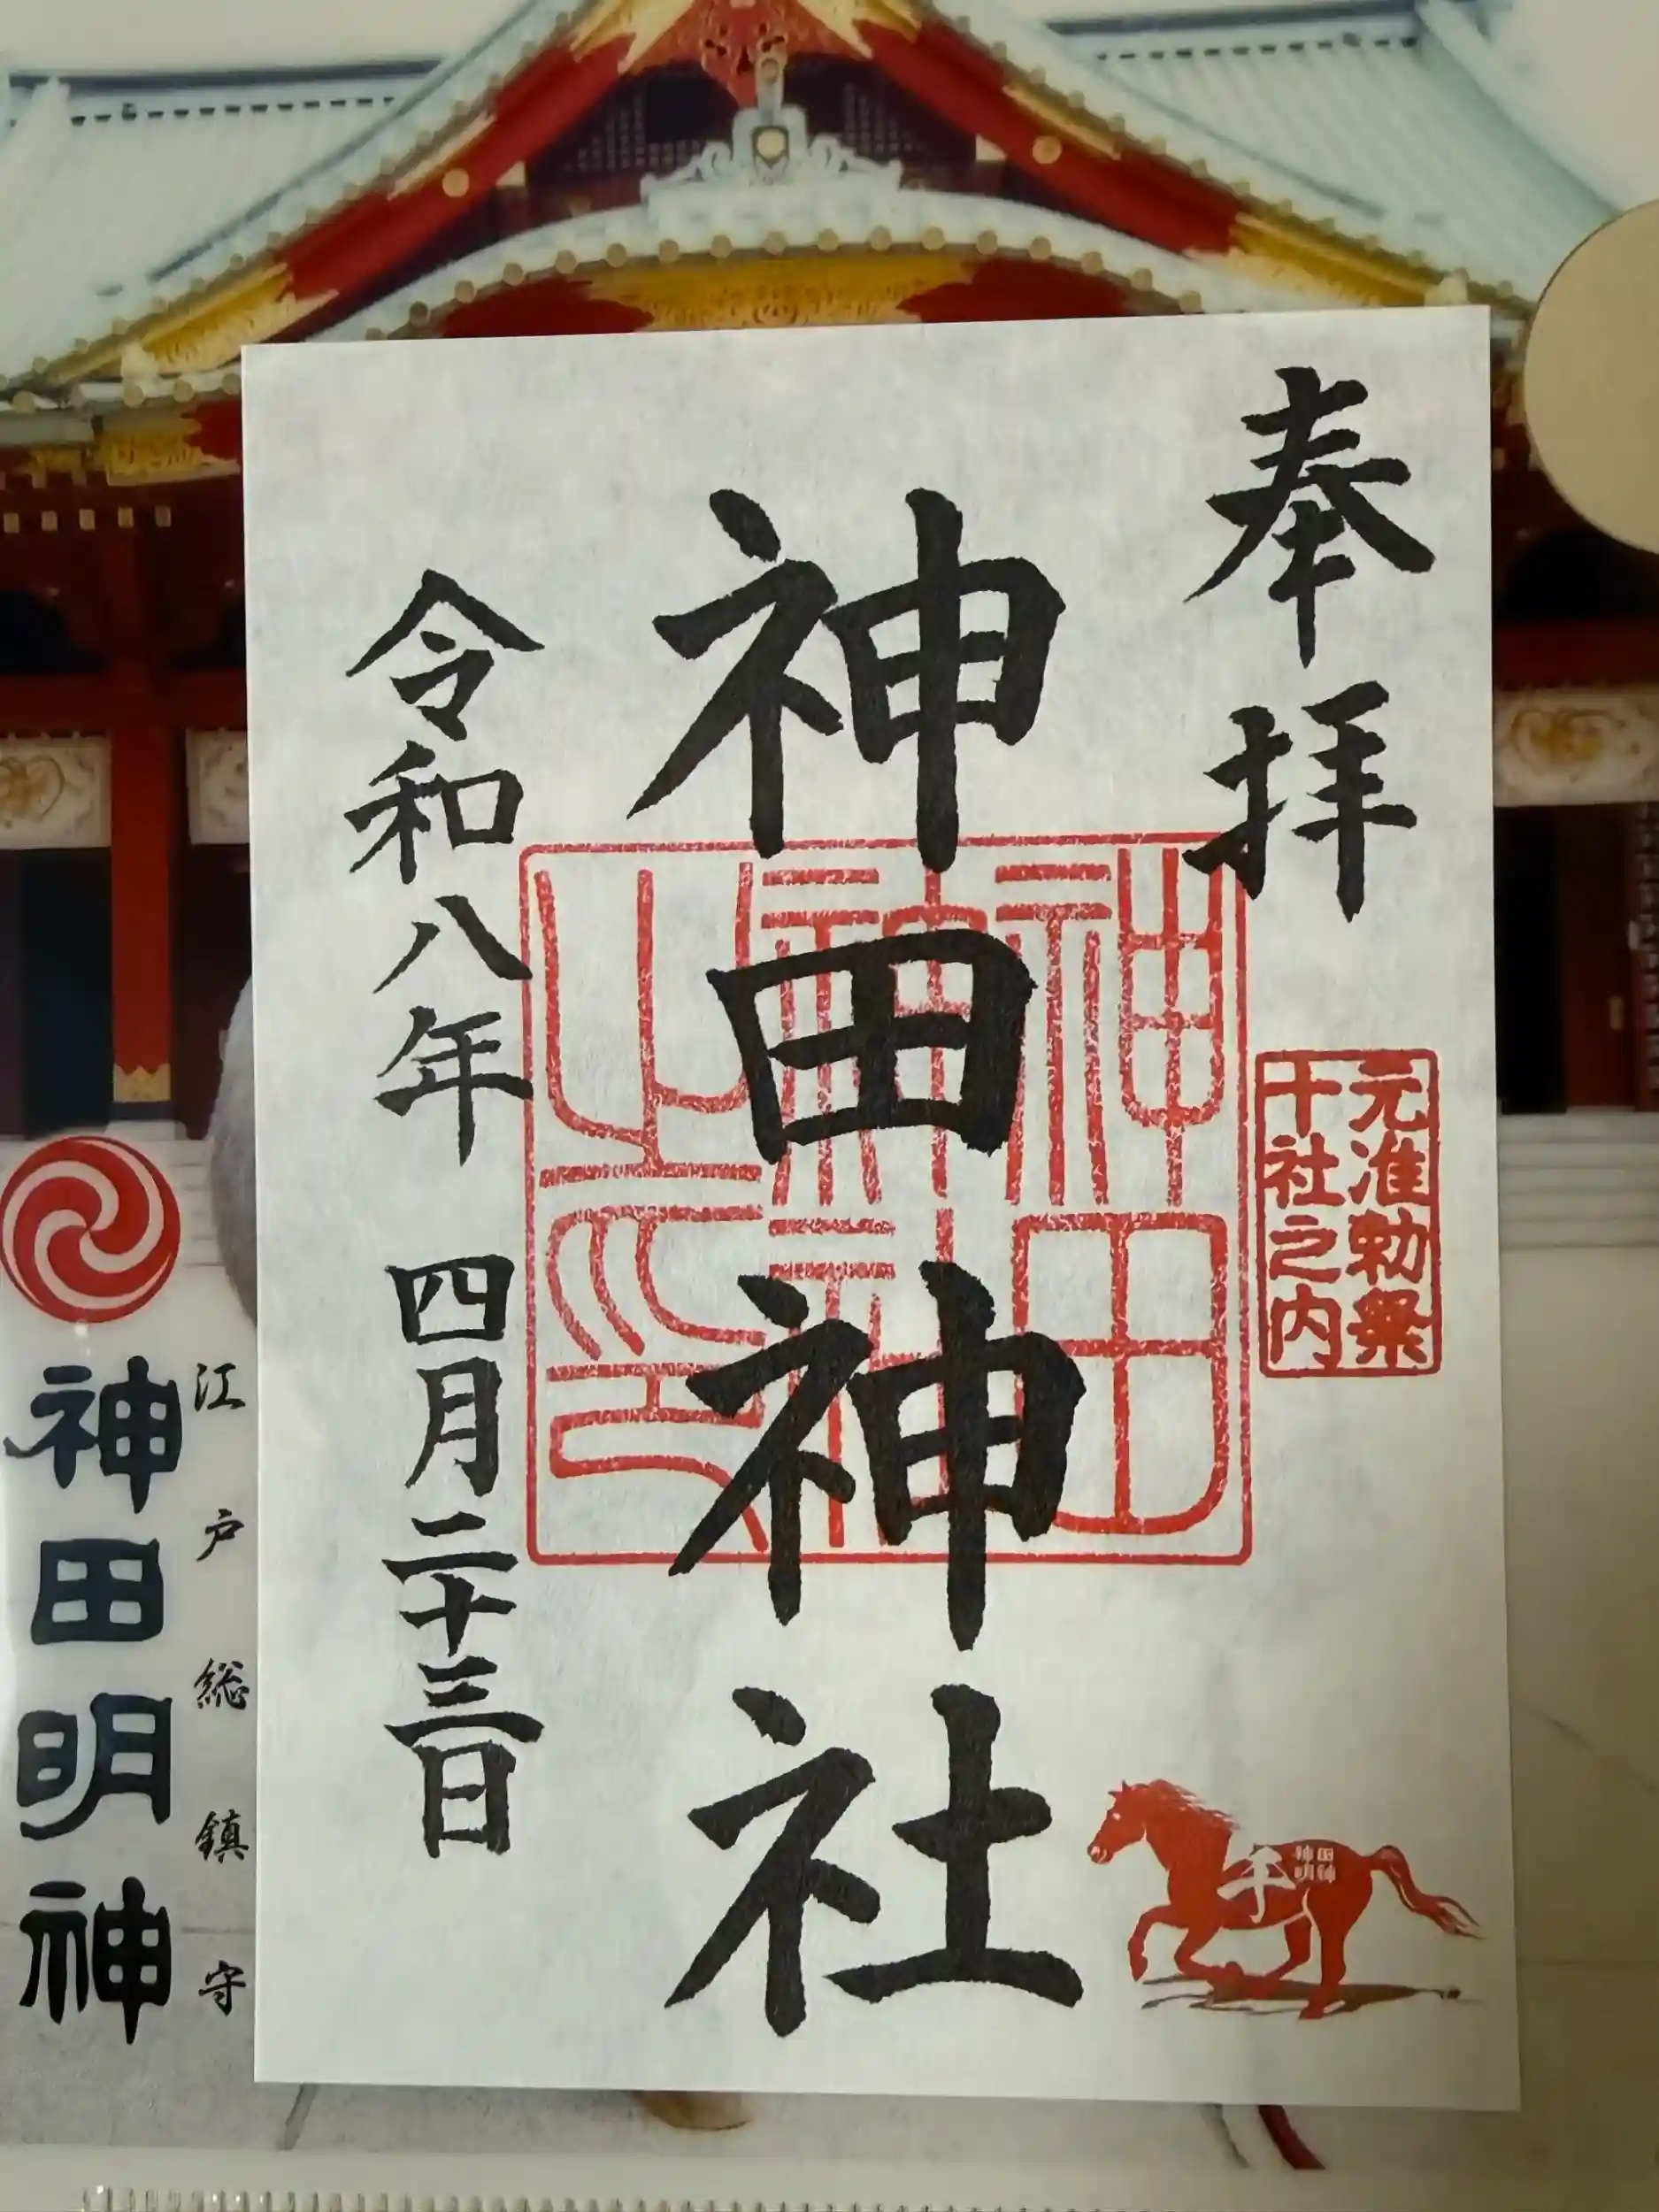 奉拝
元准勅祭
十社之内
神田神社
神田神社之印
令和八年 四月二十三日
午
神田
明神
江戸総鎮守
神田明神